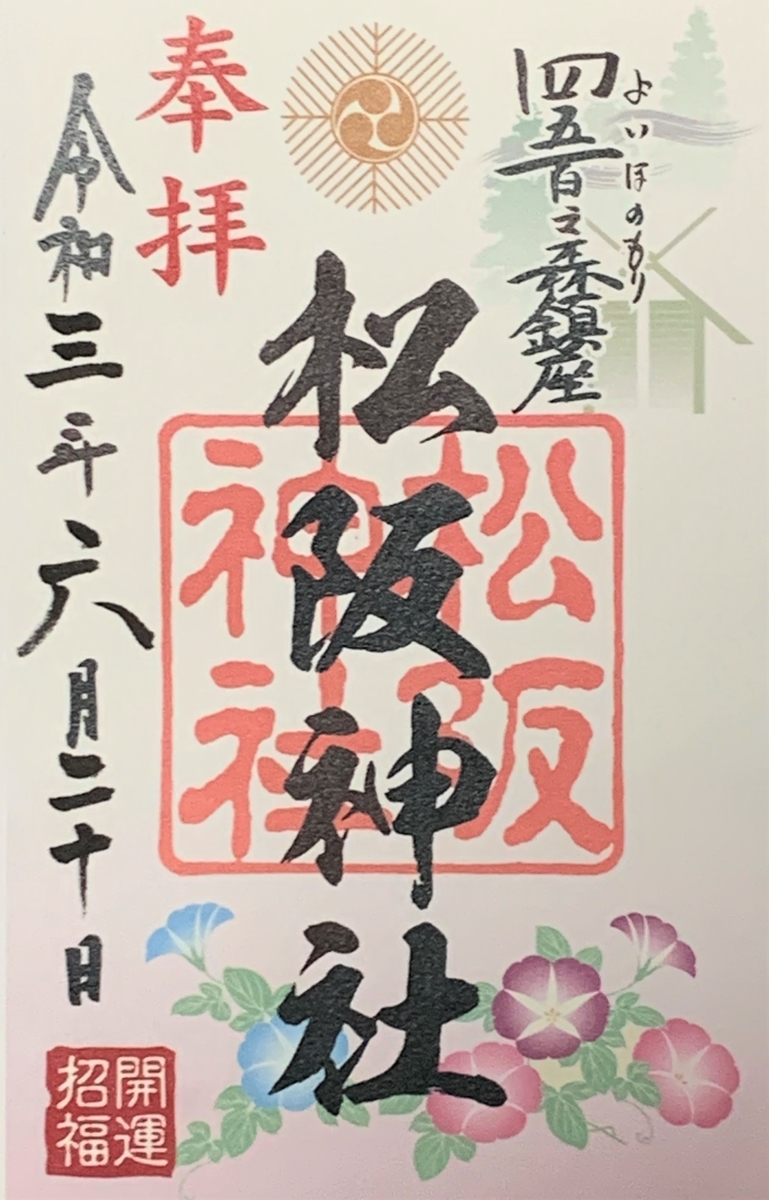 四五百之森鎮座
よいほのもり
奉拝
松阪神社
松阪
神社
令和三年六月二十日
開運
招福